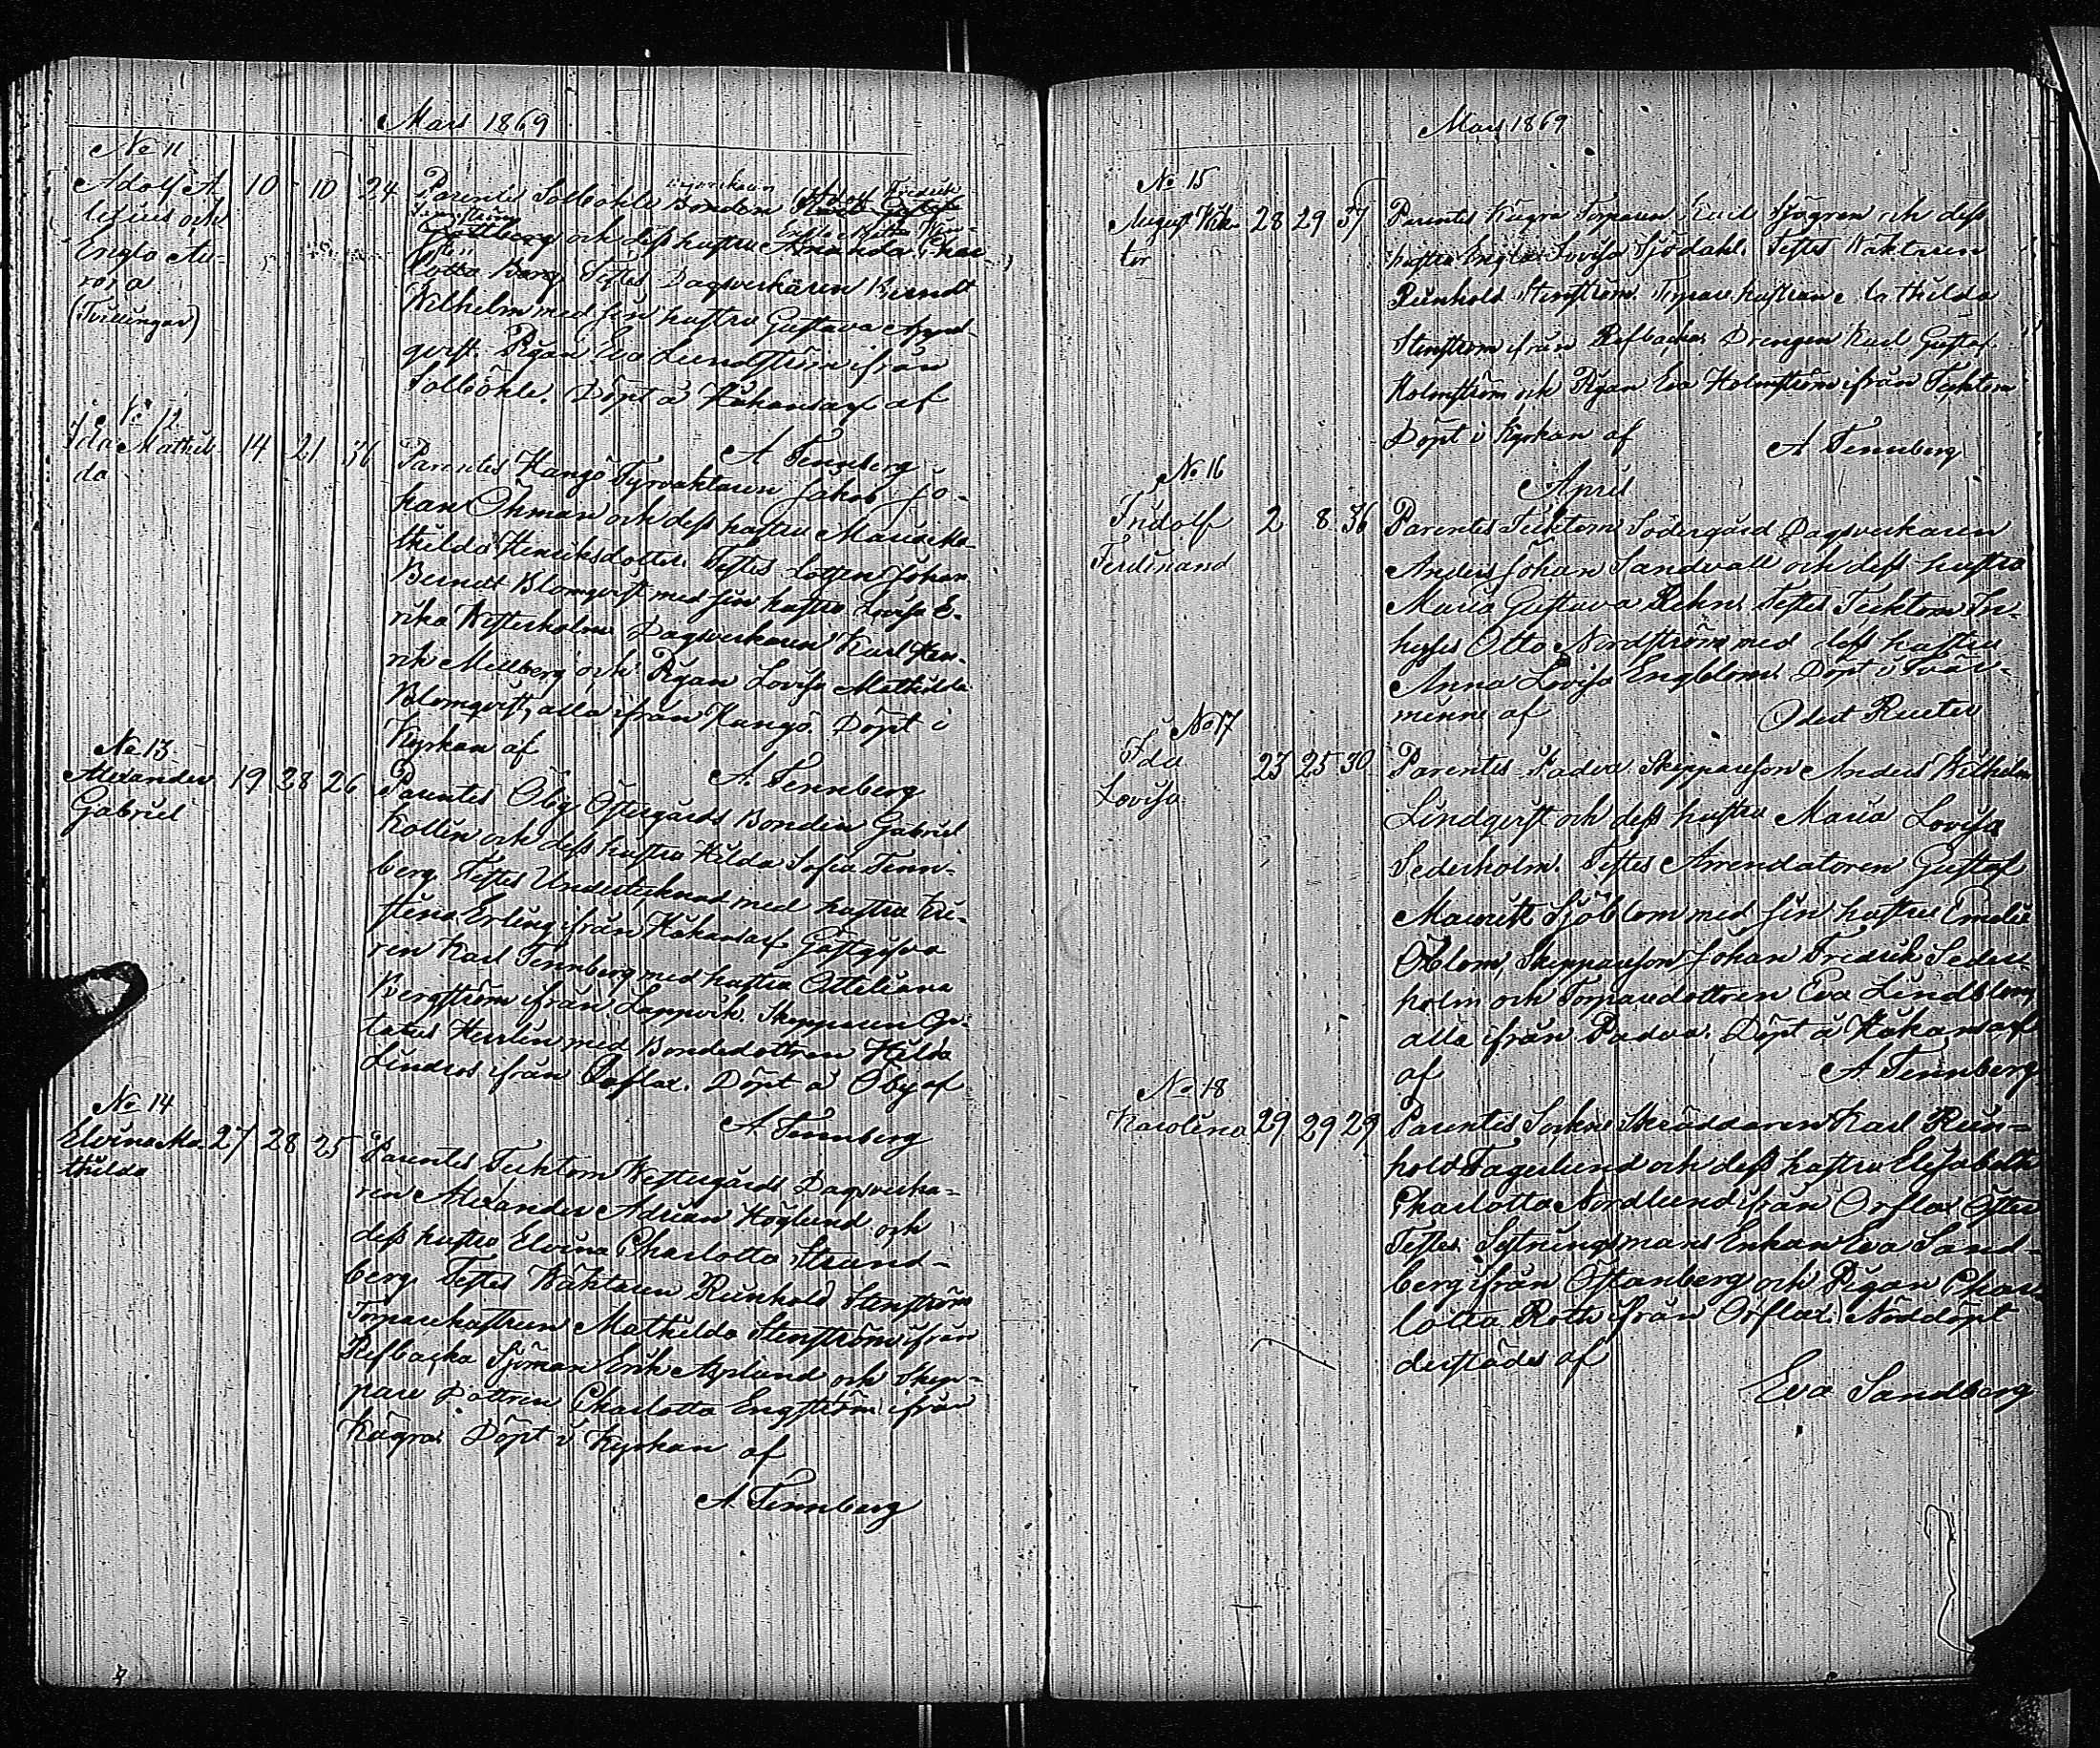 Mars 1869
No 11
Adolf A-
lexius och
Engla Au-
rora
(Tvillingar)
10 10 24
Parentes Solböhle Bonden Adolf Fredrik
och dess hustru
Lotta Berg Testes Dagsverkaren Berndt
Wilhelm med sin hustru Gustava
qvist. Pigan Eva Lundström ifrån
Solböhle. Döpt å Håkansarf af
A Tennberg
No 12
Ida Mathil-
da
14 21 36
Parentes Hangö Fyrvaktaren Jakob Jo-
han Öhman och dess hustru Maria Ma-
thilda Henriksdotter. Testes Lotsen Johan
Berndt Blomqvist med sin hustru Lovisa E-
rika Westerholm Dagsverkaren Karl Hen-
rik Mellberg och Pigan Lovisa Mathilda
Blomqvist, alla ifrån Hangö. Döpt i
Kyrkan af
A. Tennberg
No 13
Alexander
Gabriel
19 28 26
Parentes Öby Östergårds Bonden Gabriel
Kollin och dess hustru Hilda Sofia Tenn-
berg. Testes Undertecknad med hustru Kri-
stina Erling ifrån Håkansarf Gästgifva
ren Karl Tennberg med hustru Ottiliana
Bergström ifrån Lappvik. Skepparen Gu-
status Herlin med Bondedottren Hilda
Lindros ifrån Joflax. Döpt å Öby af
A Tennberg
No 14
Elvina Ma-
thilda
27 28 25
Parentes Tecktom Westergårds Dagsverka-
ren Alexander Adrian Höglund och
dess hustru Elvina Charlotta Strand-
berg. Testes Wäktaren Reinhold Stenström
Torparehustrun Mathilda Stenström ifrån
Refbacka Sjöman Erik Asplund och Skep-
pare Dottren Charlotta Engström ifrån
Kägra. Döpt i Kyrkan af
A Tennberg
Mars 1869
No 15
August Vik-
tor
28 29 37
Parentes Kägra Torparen Emil Sjögren och dess
hustru Engla Lovisa Sjödahl. Testes Wäktaren
Reinhold Stenström. Torpare hustrun Mathilda
Stenström ifrån Refbacka Drengen Karl Gustaf
Holmström och Pigan Eva Holmström ifrån Tecktom
Döpt i Kyrkan af
A Tennberg
April
No 16
Indolf
Ferdinand
2 8 36
Parentes Tecktom Södergård Dagsverkaren
Anders Johan Sandvall och dess hustru
Maria Gustava Rehn. Testes Tecktom In-
hyses Otto Nordström med dess hustru
Anna Lovisa Engblom. Döpt i Tvär-
minne af
Odert Reuter
No 17
Ida
Lovisa
23 25 30
Parentes Padva Skepparson Anders Wilhelm
Lindqvist och dess hustru Maria Lovisa
Sederholm. Testes Arrendatoren Gustaf
Mauritz Sjöblom med sin hustru Emelie
Öblom, Skepparson Johan Fredrik Seder-
holm och Torparedottren Eva Lindblom
alla ifrån Padva. Döpt å Håkansarf
af
A Tennberg
No 18
Karolina
29 29 29
Parentes Sockne Skräddaren Karl Rein-
hold Fagerlund och dess hustru Elisabeth
Charlotta Nordlund ifrån Orflax Öster
Testes Sextningsmans Enkan Eva Sand-
berg ifrån Östanberg och Pigan Char
lotta Roth ifrån Orflax. Nöddöpt
derstädes af
Eva Sandberg